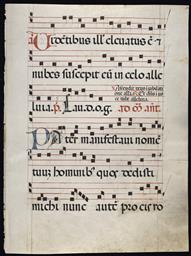 Videntibus ill' eleuatus ē &
nubes suscepit eū in celo alle
luia. p̄. Lau. d. o. g. ad
Pater manifestaui nomē
tuuz hominib' quos dedisti
michi nunc autē pro eis ro